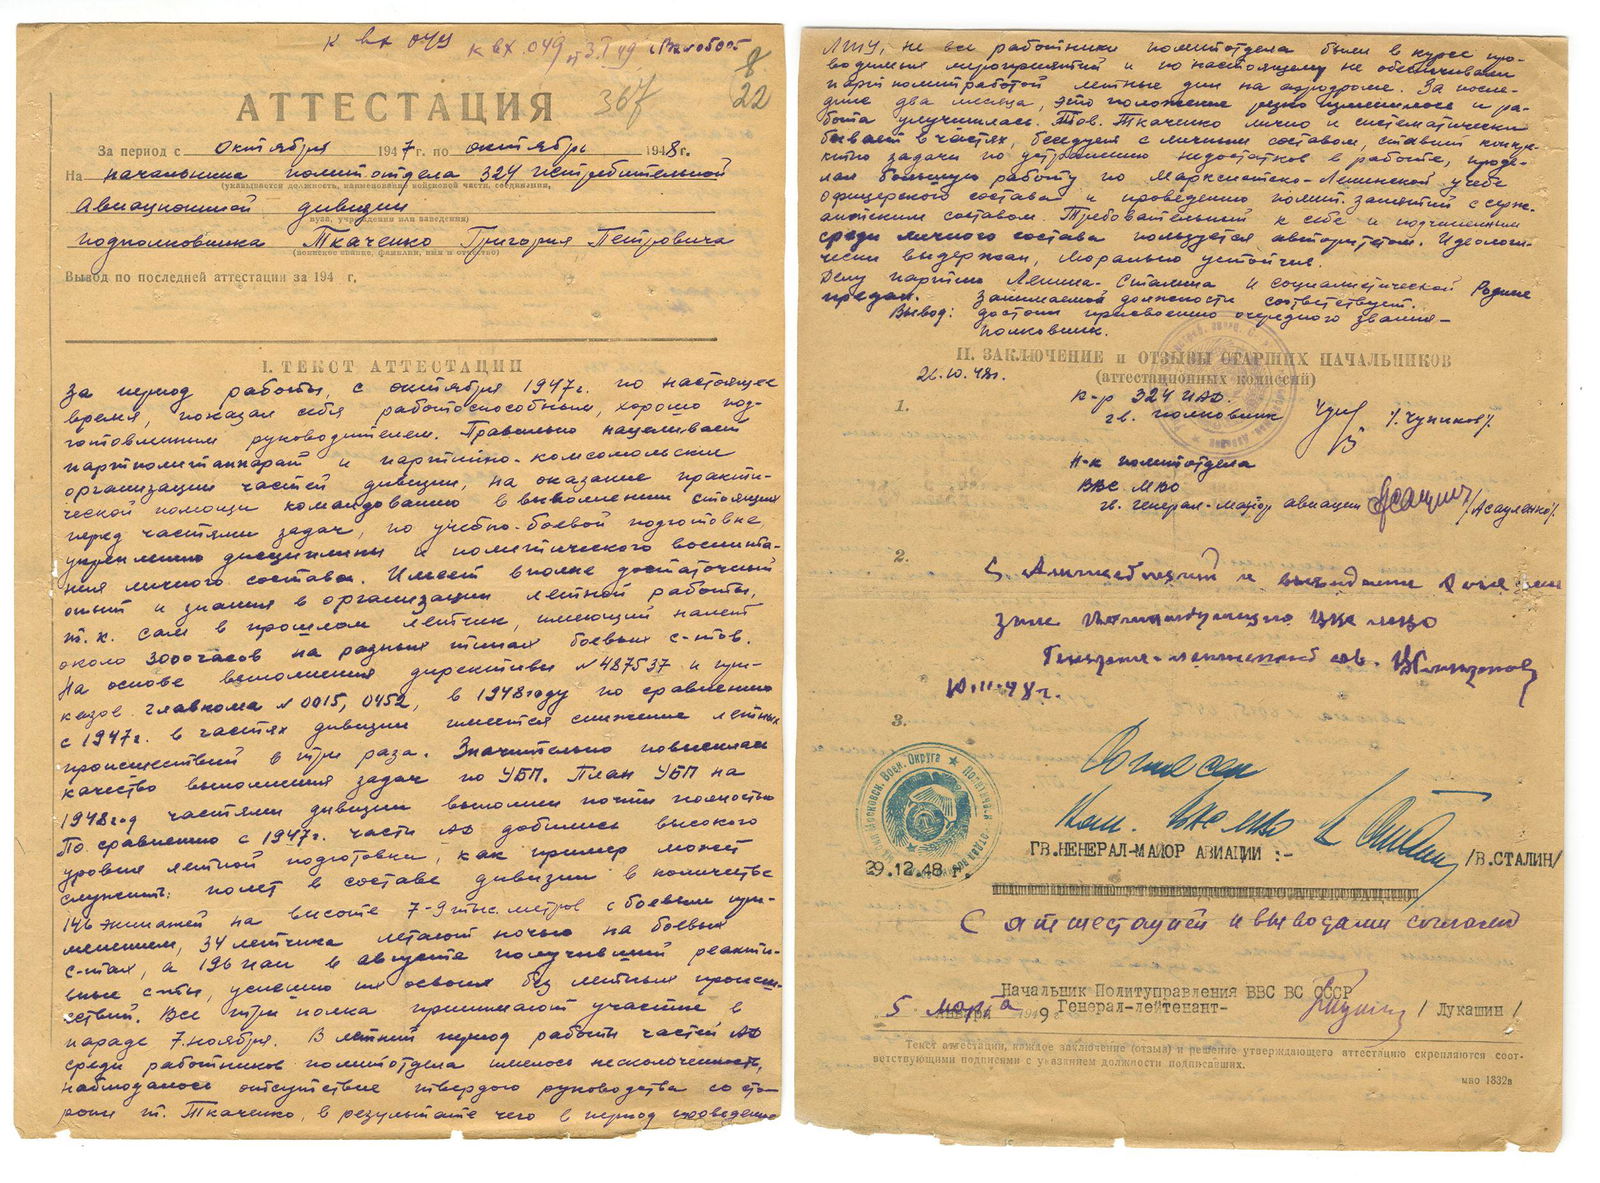 К вх 049 К вх. 049 
8
22
АТТЕСТАЦИЯ 367
За период с октября 1947 г. по октябрь 1948 г.
На начальника политотдела 324 истребительной
(указывается должность, наименование войсковой части, соединения,
авиационной дивизии
вуза, учреждения или заведения)
подполковника Ткаченко Григория Петровича
(воинское звание, фамилия, имя и отчество)
Вывод по последней аттестации за 194 г.
I. ТЕКСТ АТТЕСТАЦИИ
За период работы, с октября 1947 г. по настоящее
время, показал себя работоспособным, хорошо под-
готовленным руководителем. Правильно нацеливает
партполитаппарат и партийно-комсомольские
организации частей дивизии, на оказание практи-
ческой помощи командованию в выполнении стоящих
перед частями задач, по учебно-боевой подготовке,
укреплению дисциплины и политического воспита-
ния личного состава. Имеет вполне достаточный
опыт и знания в организации летной работы,
т.к. сам в прошлом летчик, имеющий налет
около 3000 часов на разных типах боевых с-тов.
На основе выполнения директивы № 487537 и при-
казов главкома № 0015, 0452, в 1948 году по сравнению
с 1947 г. в частях дивизии имеется снижение летных
происшествий в три раза. Значительно повысилась
качество выполнения задач по УБП. План УБП на
1948 год частями дивизии выполнен почти полностью
По сравнению с 1947 г. части АД добились высокого
уровня летной подготовки, как пример может
служить: полет в составе дивизии в количестве
146 экипажей на высоте 7-9 тыс. метров с боевым при-
менением, 34 летчика летают ночью на боевых
с-тах, а 196 иап в августе получивший реакти-
вные с-ты, успешно их освоил без летных происше-
ствий. Все три полка принимают участие в
параде 7. ноября. В летний период работы частей АД
среди работников политотдела имелось
наблюдалось отсутствие твердого руководства со сто-
роны т. Ткаченко, в результате чего в период проведения
ЛТУ, не все работники политотдела были в курсе про-
водимых мероприятий и по настоящему не обеспечивали
партполитработой летные дни на аэродроме. За после-
дние два месяца, это положение резко изменилось и ра-
бота улучшилась. Тов. Ткаченко лично и систематически
бывает в частях, беседует с личным составом, ставит конкре-
ктно задачи по устранению недостатков в работе, проде-
лал большую работу по Марксистско-Ленинской учебе
офицерского состава и проведению полит. занятий с серж-
антским составом. Требовательный к себе и подчиненным
среди личного состава пользуется авторитетом. Идеологи-
чески выдержан, морально устойчив.
Делу партии Ленина-Сталина и социалистической Родине
предан. Занимаемой должности соответствует.
Вывод: достоин присвоению очередного звания-
полковник.
II. ЗАКЛЮЧЕНИЕ и ОТЗЫВЫ СТАРШИХ НАЧАЛЬНИКОВ
26.10.48г. (аттестационных комиссий)
1. К-р 324 ИАД.
гв. полковник /Чупиков/.
Н-к политотдела
ВВС МВО
гв. генерал-майор авиации /Асауленко/.
2.
генерал-лейтенант ав.
10.III.48г.
3.
Согласен
Ком. ВВС МВО
ГВ.НЕНЕРАЛ-МАЙОР АВИАЦИИ :- /В.СТАЛИН/
29.12.48 г.
С аттестацией и выводами согласен
Начальник Политуправления ВВС ВС СССР
Генерал-лейтенант- /Лукашин/
5 марта 1949
Текст аттестации, каждое заключение (отзыв) и решение утверждающего аттестацию скрепляются соот-
ветствующими подписями с указанием должности подписавших.
мво 1832в